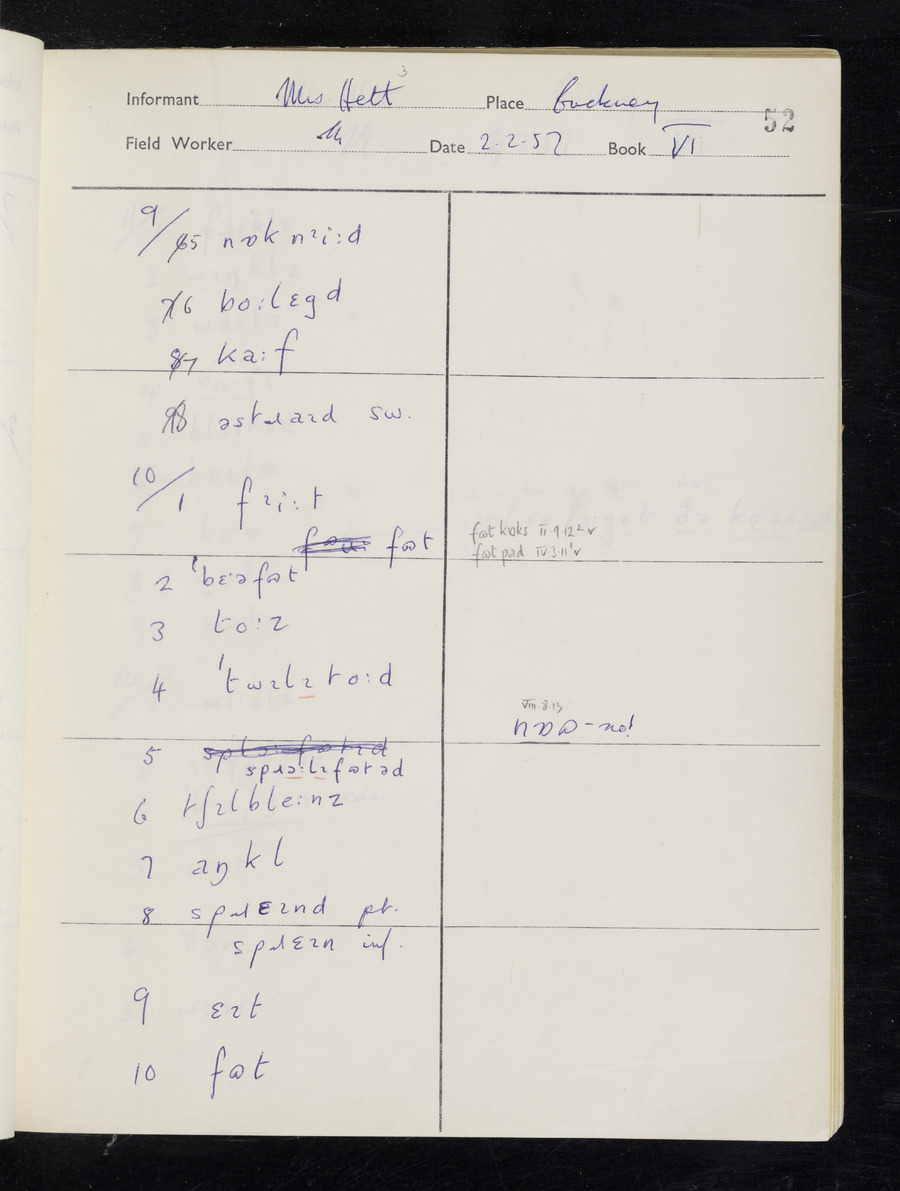 Informant Mrs Hett 3 Place Buckney
52
Field Worker Date 2.2.57 Book VI
9/ 5 nɒk nɪi:d
6 bo:lɛgd
7 ka:f
8 əstɹaɪd sw.
10/1 fɪi:t
fɷt
fɷt kɷks II.9.12² v
fɷt pad IV.3.11¹ v
2 'bɛ:əfɷt
3 to:z
4 'twɪlɪto:d
VIII.8.13
nɒɷ - no!
5
spɹə:lɪfɷtəd
6 tʃɪlble:nz
7 aŋkl
8 spɹɛɪnd pt.
spɹɛɪn inf.
9 ɛɪt
10 fɷt